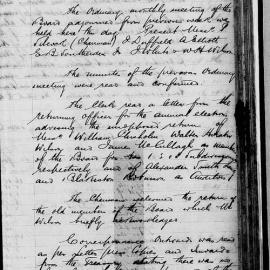 The Ordinary monthly meeting of the
Board adjourned from previous week was
held here this day. Present Messrs
(Chairman) J Duffield A Elliott
E. B. J. W H Wilson
The minutes of the previous Ordinary
meeting were read and confirmed.
The Clerk read a letter from the
returning officer for the annual election
advising the unopposed return of
Messrs William Chisholm Walter
Wilson and James McCullagh as members
of the Board for Nos 1, 3 Subdivisions
respectively and of Alexander
and Robinson as Auditors
The Chairman welcomed the return of
the old members to the Board which Mr
Wilson briefly acknowledged
Correspondence Outwards was read
as per letter press Copies and Inwards
from the Treasury stating there was no